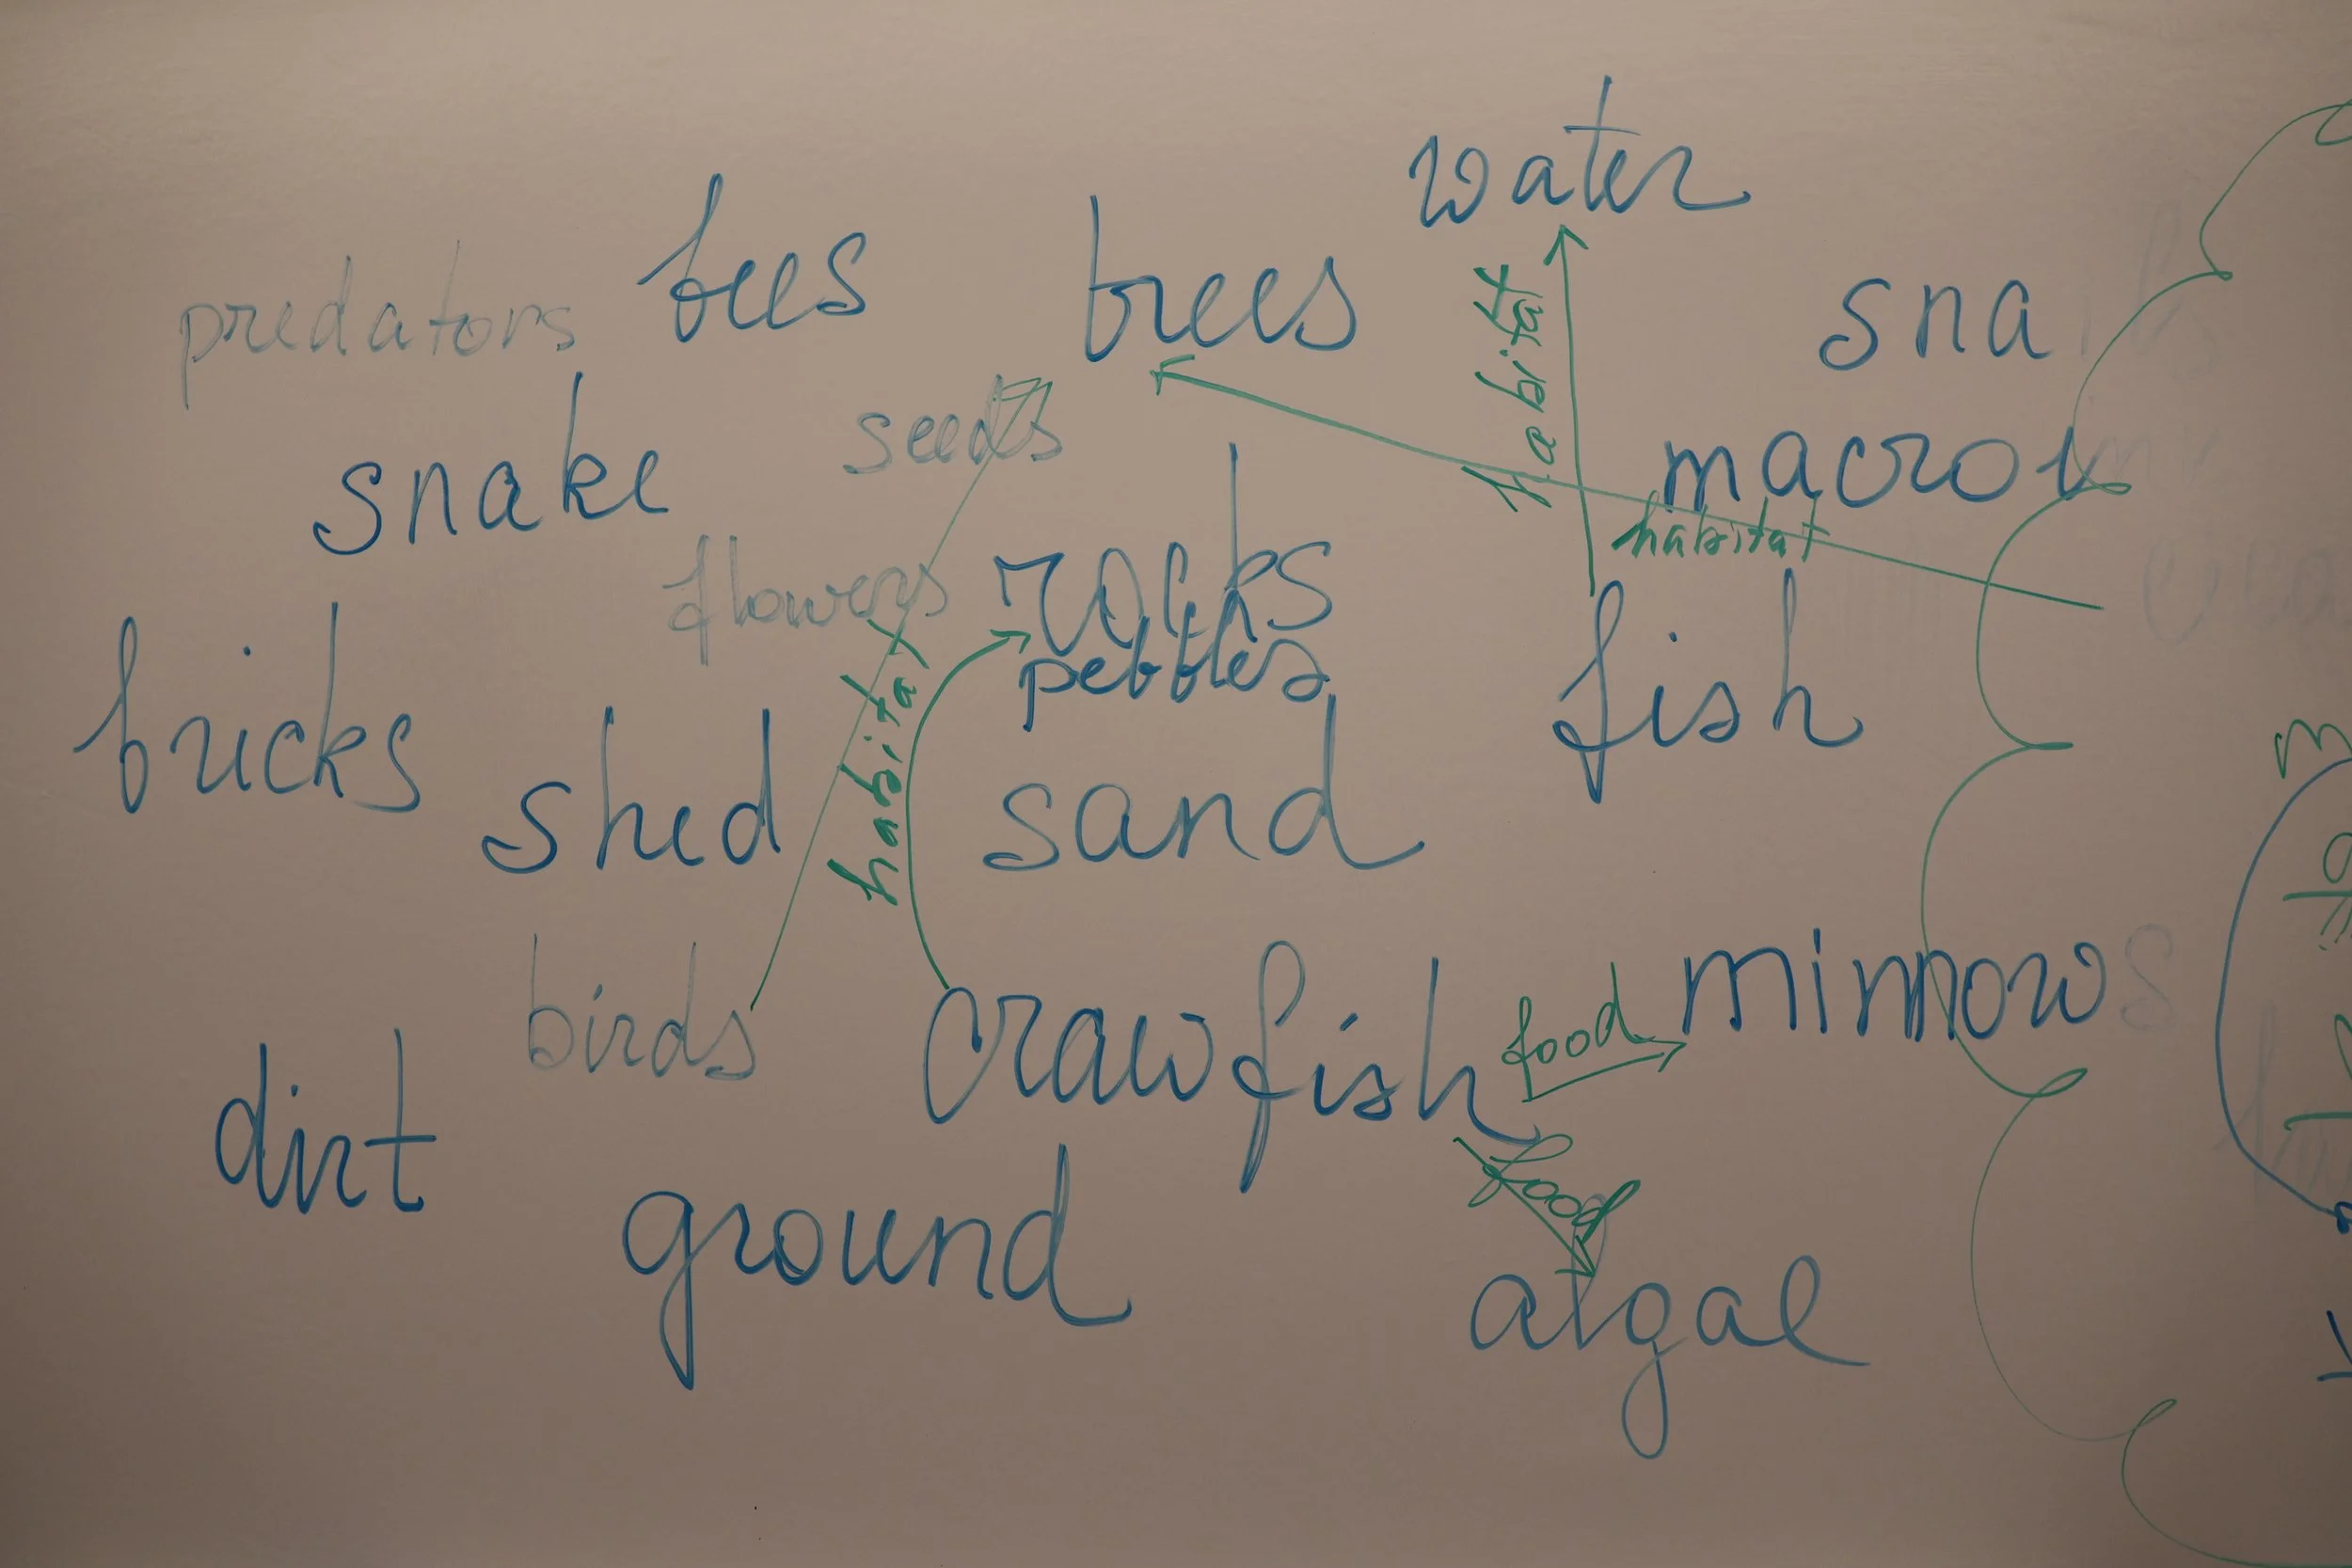 water
bees
trees
predators
sna
habitat
snake
seeds
macroi
habitat
flowers
rocks
pebbles
fish
bricks
shed
habitat
sand
birds
crawfish
food
minnows
dirt
food
ground
algal